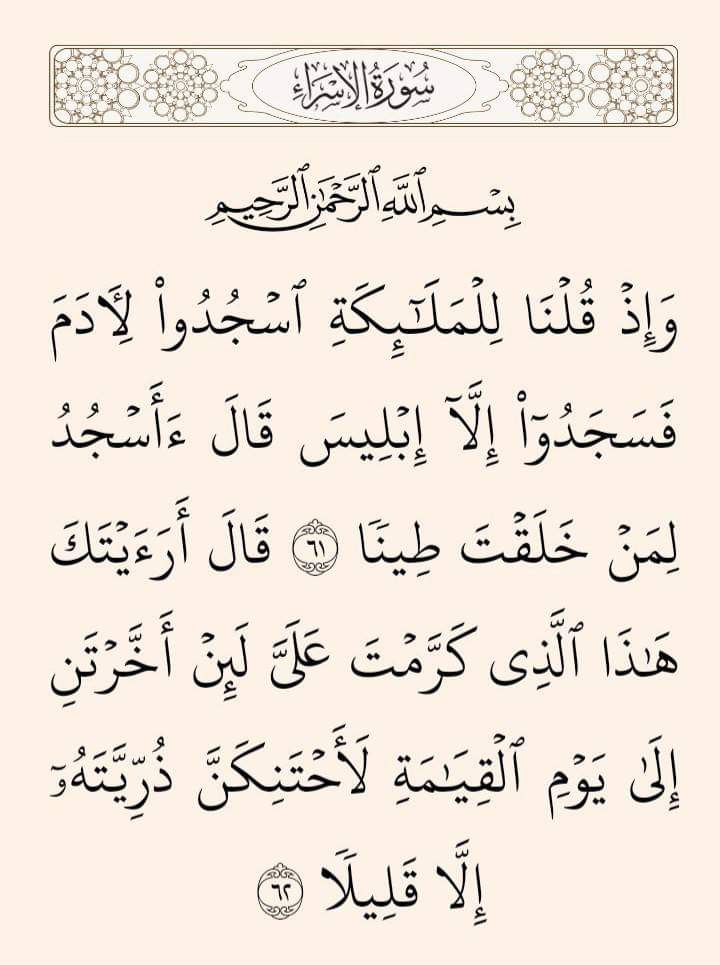 سُورَةُ الإِسْرَاءِ
بِسْمِ ٱللَّهِ ٱلرَّحْمَٰنِ ٱلرَّحِيمِ
وَإِذْ قُلْنَا لِلْمَلَٰٓئِكَةِ ٱسْجُدُوا۟ لِأَدَمَ
فَسَجَدُوٓا۟ إِلَّآ إِبْلِيسَ قَالَ ءَأَسْجُدُ
لِمَنْ خَلَقْتَ طِينًا ٦١ قَالَ أَرَءَيْتَكَ
هَٰذَا ٱلَّذِى كَرَّمْتَ عَلَىَّ لَئِنْ أَخَّرْتَنِ
إِلَىٰ يَوْمِ ٱلْقِيَٰمَةِ لَأَحْتَنِكَنَّ ذُرِّيَّتَهُۥٓ
إِلَّا قَلِيلًا ٦٢